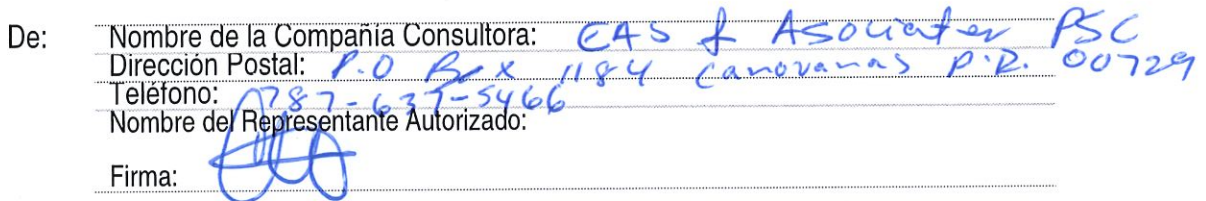 De: Nombre de la Compañia Consultora: EAS & Asociates PSC
Dirección Postal: P.O Box 1184 Canovanas P.R. 00729
Teléfono: 787-637-5466
Nombre del Representante Autorizado:
Firma: